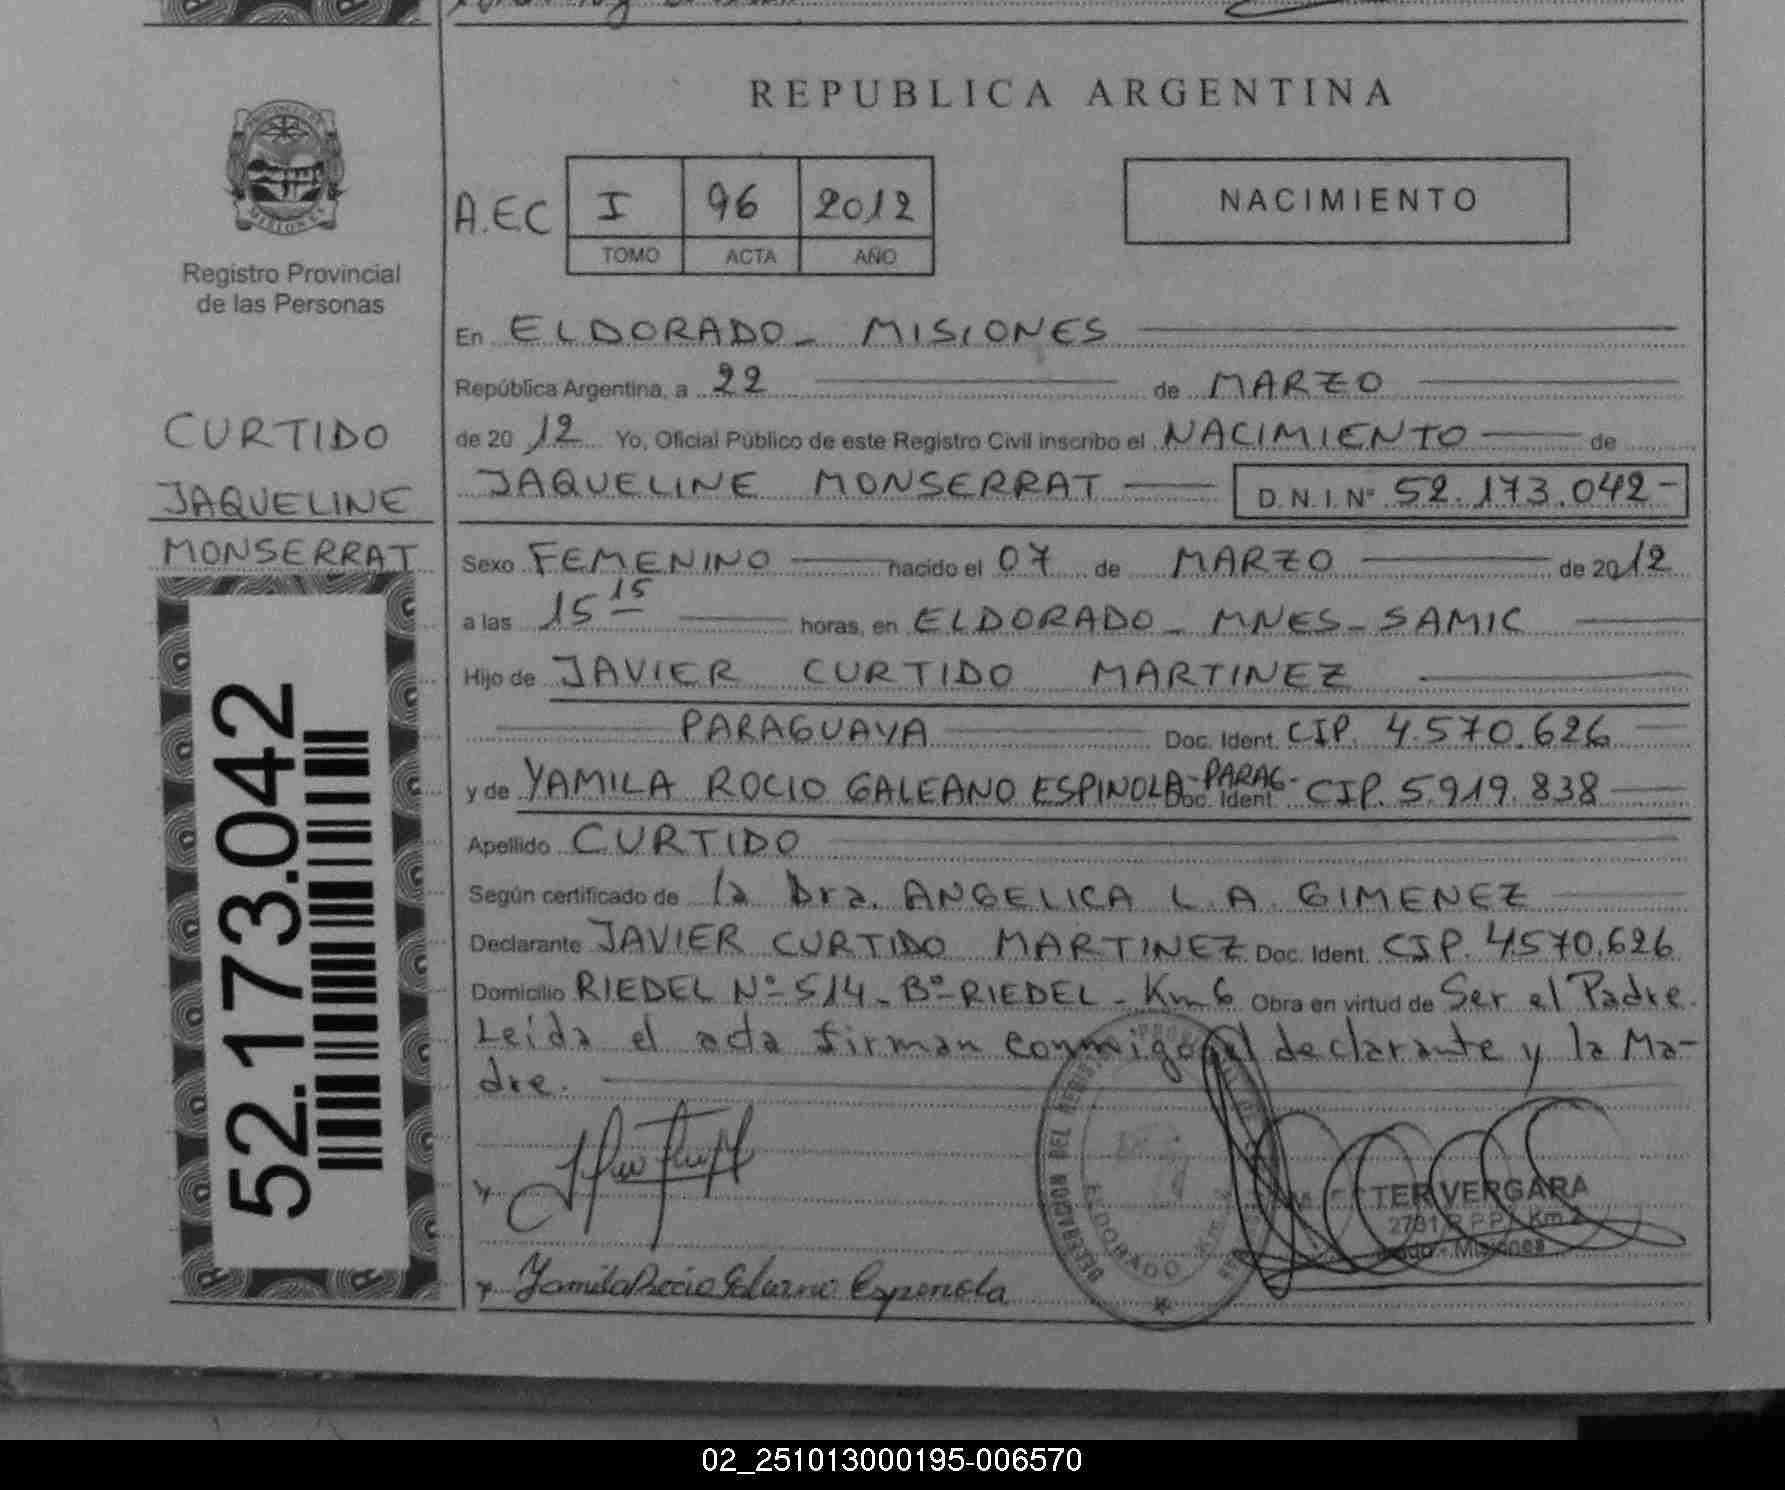 REPUBLICA ARGENTINA
PROVINCIA DE MISIONES
Registro Provincial
de las Personas
A.E.C I 96 2012
TOMO ACTA AÑO
NACIMIENTO
En ELDORADO - MISIONES
República Argentina, a 22 de MARZO
de 20 12 Yo, Oficial Público de este Registro Civil inscribo el NACIMIENTO de
JAQUELINE MONSERRAT D.N.I. N° 52.173.042-
CURTIDO
JAQUELINE
MONSERRAT
52.173.042
Sexo FEMENINO nacido el 07 de MARZO de 2012
a las 15 15 horas, en ELDORADO - MNES - SAMIC
Hijo de JAVIER CURTIDO MARTINEZ
PARAGUAYA Doc. Ident. CIP. 4.570.626
y de YAMILA ROCIO GALEANO ESPINOLA - PARAG - Doc. Ident. CIP. 5.919.838
Apellido CURTIDO
Según certificado de la Dra. ANGELICA L. A. GIMENEZ
Declarante JAVIER CURTIDO MARTINEZ Doc. Ident. CIP. 4.570.626
Domicilio RIEDEL Nº 514 - Bº RIEDEL - Km 6 Obra en virtud de Ser el Padre.
Leída el acta firman conmigo el declarante y la Ma-
dre.
DELEGACION DEL REGIS. PROV.
ELDORADO Km. 2
TER VERGARA
2781 R.P.P. Km 2
Misiones
Yamila Rocio Galeano Espinola
02_251013000195-006570